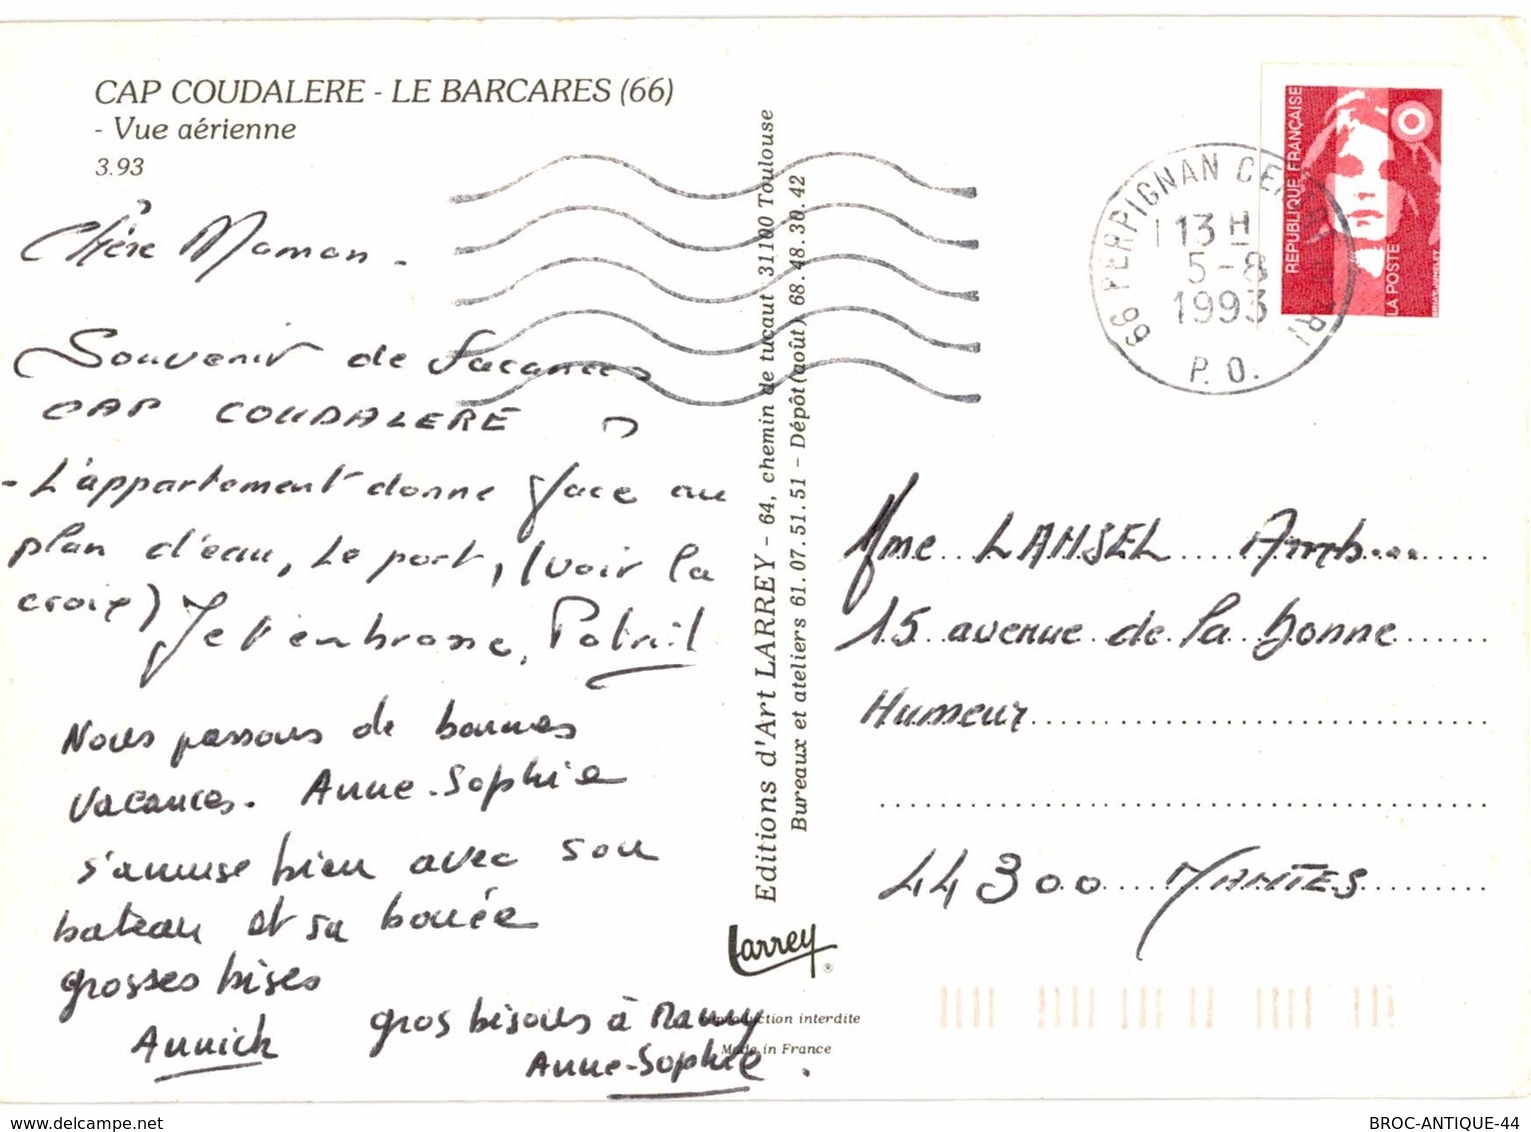 CAP COUDALERE - LE BARCARES (66)
- Vue aérienne
3.93
Chère Maman.
Souvenir de Vacances
CAP COUDALERE
- L'appartement donne face au
plan d'eau, le port, (voir la
croix) Je t'embrasse,
Nous passons de bonnes
vacances. Anne-Sophie
s'amuse bien avec son
bateau et sa bouée
grosses bises
Annick
gros bisous à Mamy
Anne-Sophie.
Editions d'Art LARREY - 64, chemin de tucaut 31100 Toulouse
Bureaux et ateliers 61.07.51.51 - Dépôt (août) 68.48.30.42
Larrey
®
reproduction interdite
Made in France
66 PERPIGNAN CENTRAL
13 H
5-8
1993
P.O.
REPUBLIQUE FRANÇAISE
LA POSTE
Mme LANSEL
15 avenue de la bonne
Humeur
44300 NANTES
delcampe.net
BROC-ANTIQUE-44